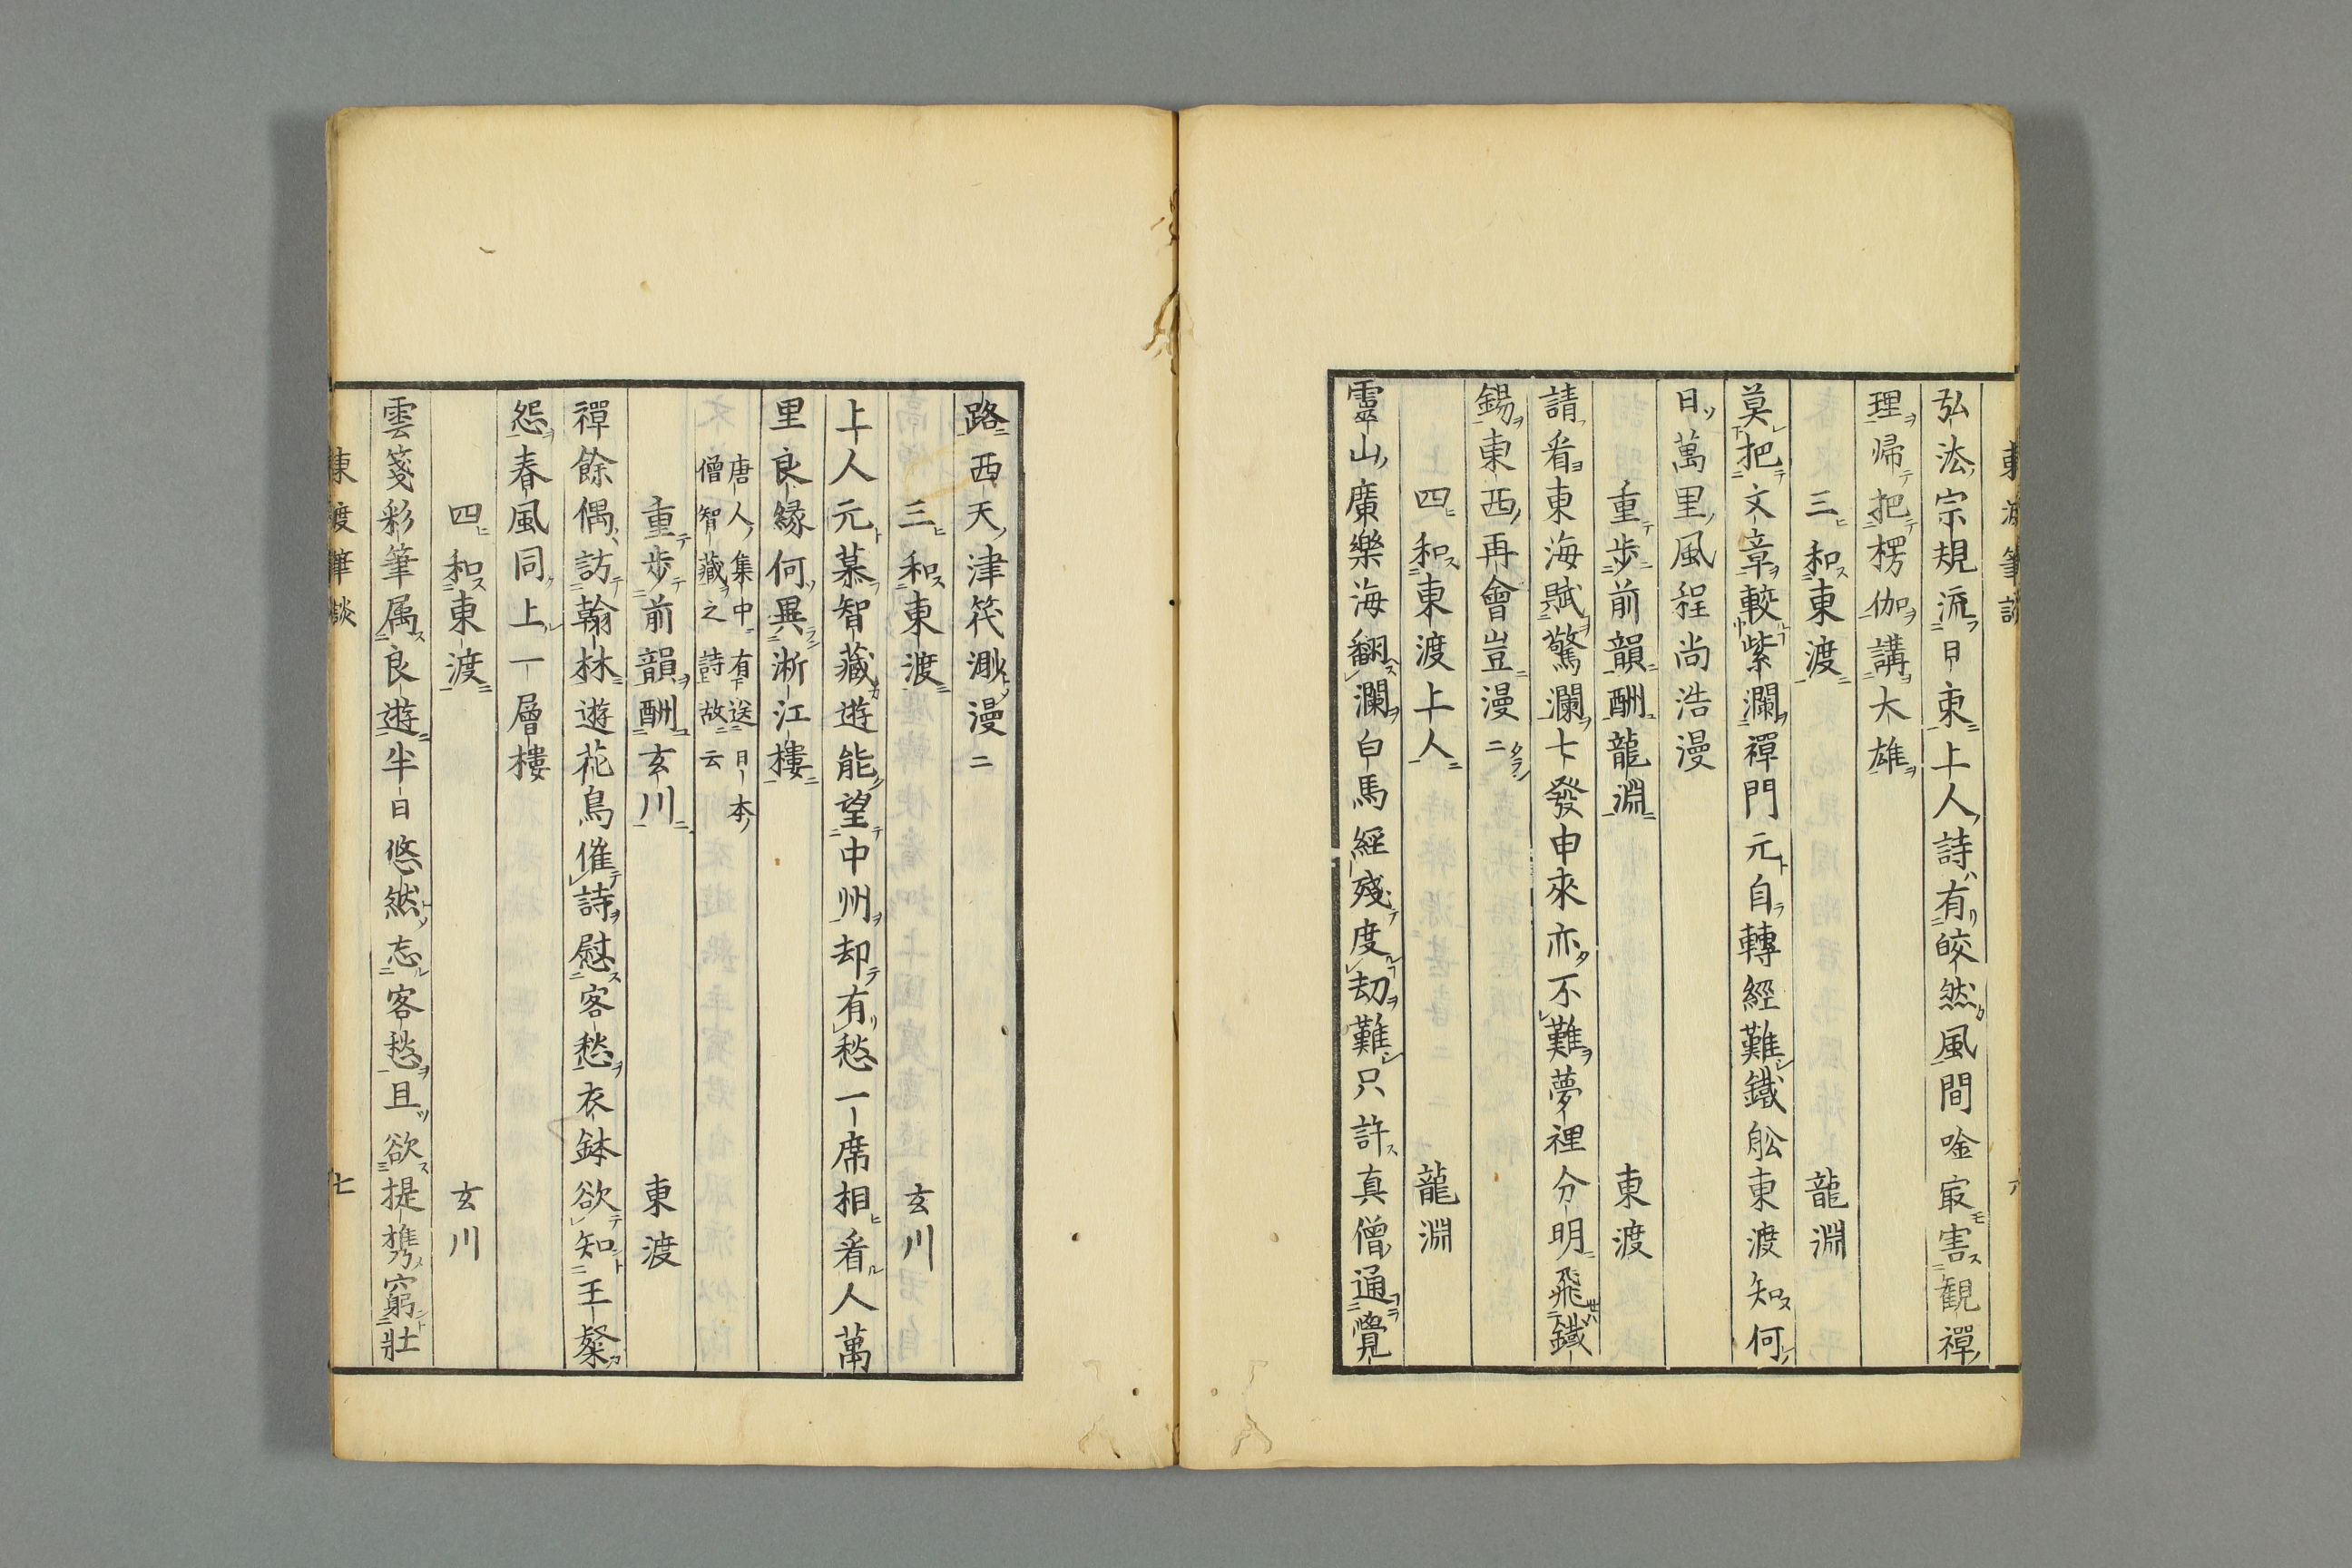 東渡筆談
弘法宗規流日東上人詩有皎然風間唫寂害観禪
理帰把楞伽講大雄
三和東渡 龍淵
莫把文章較紫瀾禪門元自轉經難鐵舩東渡知何
日萬里風程尚浩漫
重歩前韻酬龍淵 東渡
請看東海賦驚瀾七發申來亦不難夢裡分明飛鐵
錫東西再會豈漫二
四和東渡上人 龍淵
靈山廣樂海翻瀾白馬經殘度劫難只許真僧通覺
路西天津筏渺漫二
三和東渡 玄川
上人元慕智藏遊能望中州却有愁一席相看人萬
里良縁何異淅江樓
唐人集中有送日本
僧智藏之詩故云
重歩前韻酬玄川 東渡
禪餘偶訪翰林遊花鳥催詩慰客愁衣鉢欲知王粲
怨春風同上一層樓
四和東渡 玄川
雲箋彩筆属良遊半日悠然忘客愁且欲提携窮壯
東渡筆談 七